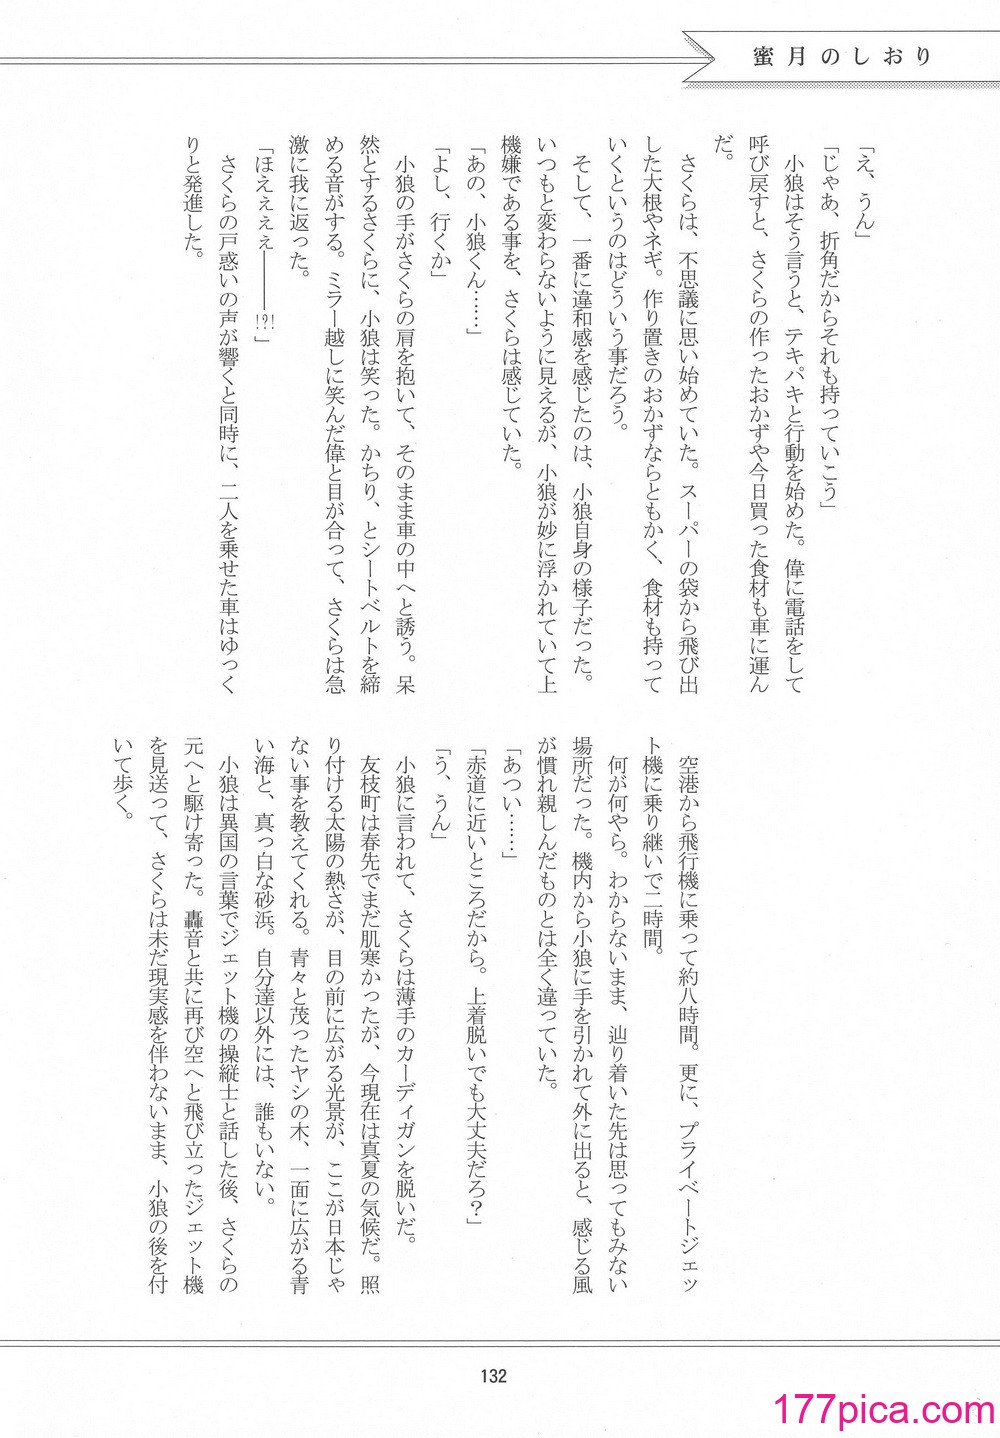 蜜月のしおり
「え、うん」
「じゃあ、折角だからそれも持っていこう」
　小狼はそう言うと、テキパキと行動を始めた。偉に電話をして
呼び戻すと、さくらの作ったおかずや今日買った食材も車に運ん
だ。
　さくらは、不思議に思い始めていた。スーパーの袋から飛び出
した大根やネギ。作り置きのおかずならともかく、食材も持って
いくというのはどういう事だろう。
　そして、一番に違和感を感じたのは、小狼自身の様子だった。
いつもと変わらないように見えるが、小狼が妙に浮かれていて上
機嫌である事を、さくらは感じていた。
「あの、小狼くん……」
「よし、行くか」
　小狼の手がさくらの肩を抱いて、そのまま車の中へと誘う。呆
然とするさくらに、小狼は笑った。かちり、とシートベルトを締
める音がする。ミラー越しに笑んだ偉と目が合って、さくらは急
激に我に返った。
「ほえぇぇぇ――――!?!」
　さくらの戸惑いの声が響くと同時に、二人を乗せた車はゆっく
りと発進した。
　空港から飛行機に乗って約八時間。更に、プライベートジェッ
ト機に乗り継いで二時間。
　何が何やら。わからないまま、辿り着いた先は思ってもみない
場所だった。機内から小狼に手を引かれて外に出ると、感じる風
が慣れ親しんだものとは全く違っていた。
「あつい……」
「赤道に近いところだから。上着脱いでも大丈夫だろ？」
「う、うん」
　小狼に言われて、さくらは薄手のカーディガンを脱いだ。
　友枝町は春先でまだ肌寒かったが、今現在は真夏の気候だ。照
り付ける太陽の熱さが、目の前に広がる光景が、ここが日本じゃ
ない事を教えてくれる。青々と茂ったヤシの木、一面に広がる青
い海と、真っ白な砂浜。自分達以外には、誰もいない。
　小狼は異国の言葉でジェット機の操縦士と話した後、さくらの
元へと駆け寄った。轟音と共に再び空へと飛び立ったジェット機
を見送って、さくらは未だ現実感を伴わないまま、小狼の後を付
いて歩く。
132
177pica.com